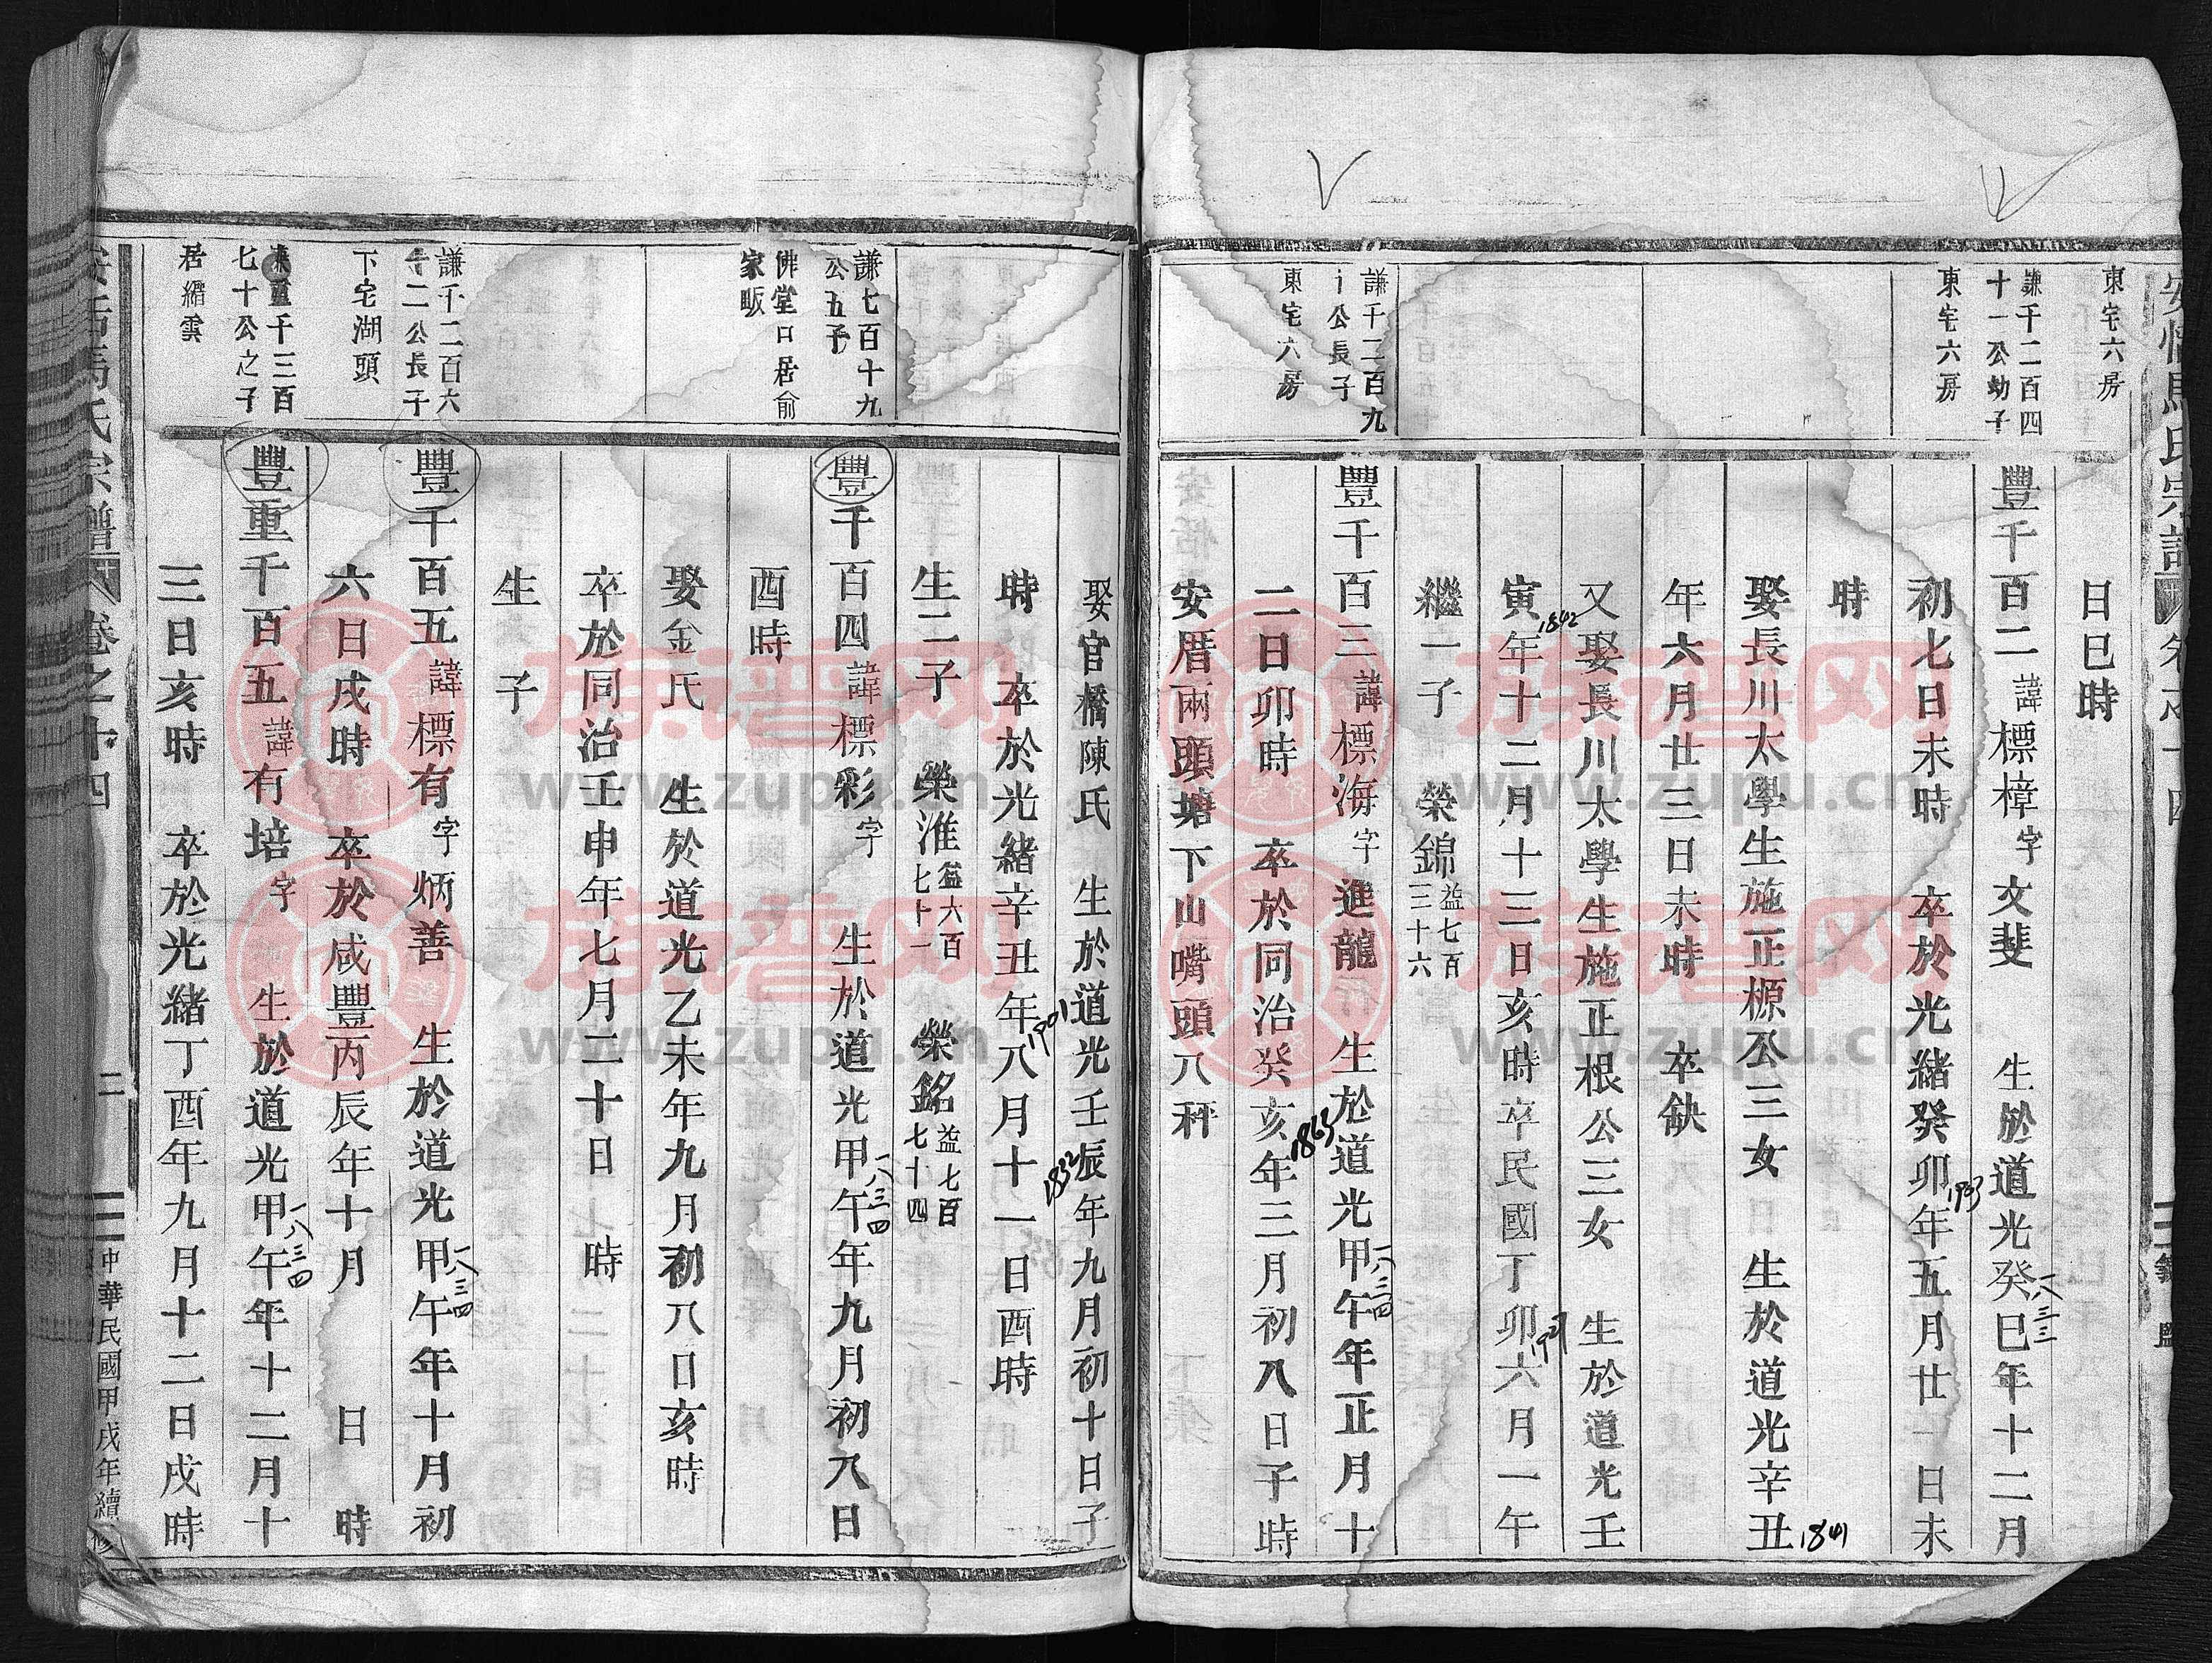 安恬馬氏宗譜
東宅六房
日巳時
謙千二百四
十一公幼子
東宅六房
豐千百二諱標樟字文斐 生於道光癸巳年十二月
一八三三
初七日未時 卒於光緒癸卯年五月廿一日未
1903
時
娶長川太學生施正榞公三女 生於道光辛丑
1841
年六月廿三日未時 卒缺
又娶長川太學生施正根公三女 生於道光壬
寅年十二月十三日亥時卒民國丁卯六月一午
1842
1927
繼一子 榮錦益七百三十六
謙千二百九
公長子
東宅六房
豐千百三諱標海字進龍行 生於道光甲午年正月十
一八三四
二日卯時 卒於同治癸亥年三月初八日子時
1863
安厝兩頭塘下山嘴頭八秤
娶官橋陳氏 生於道光壬辰年九月初十日子
1832
時 卒於光緒辛丑年八月十一日酉時
1901
生二子 榮淮益六百七十一 榮銘益七百七十四
謙七百十九
公五子
佛堂口居俞
家畈
豐千百四諱標彩字 生於道光甲午年九月初八日
一八三四
酉時
娶金氏 生於道光乙未年九月初八日亥時
卒於同治壬申年七月二十日 時
生 子
謙千二百六
十二公長子
下宅湖頭
豐千百五諱標有字炳善 生於道光甲午年十月初
一八三四
六日戌時 卒於咸豐丙辰年十月 日 時
千三百
七十公之子
居縉雲
豐重千百五諱有培字 生於道光甲午年十二月十
一八三四
三日亥時 卒於光緒丁酉年九月十二日戌時
馬氏宗譜 卷之十四 二 中華民國甲戌年續修
族谱网
www.zupu.cn
族谱网
www.zupu.cn
族谱网
www.zupu.cn
族谱网
www.zupu.cn